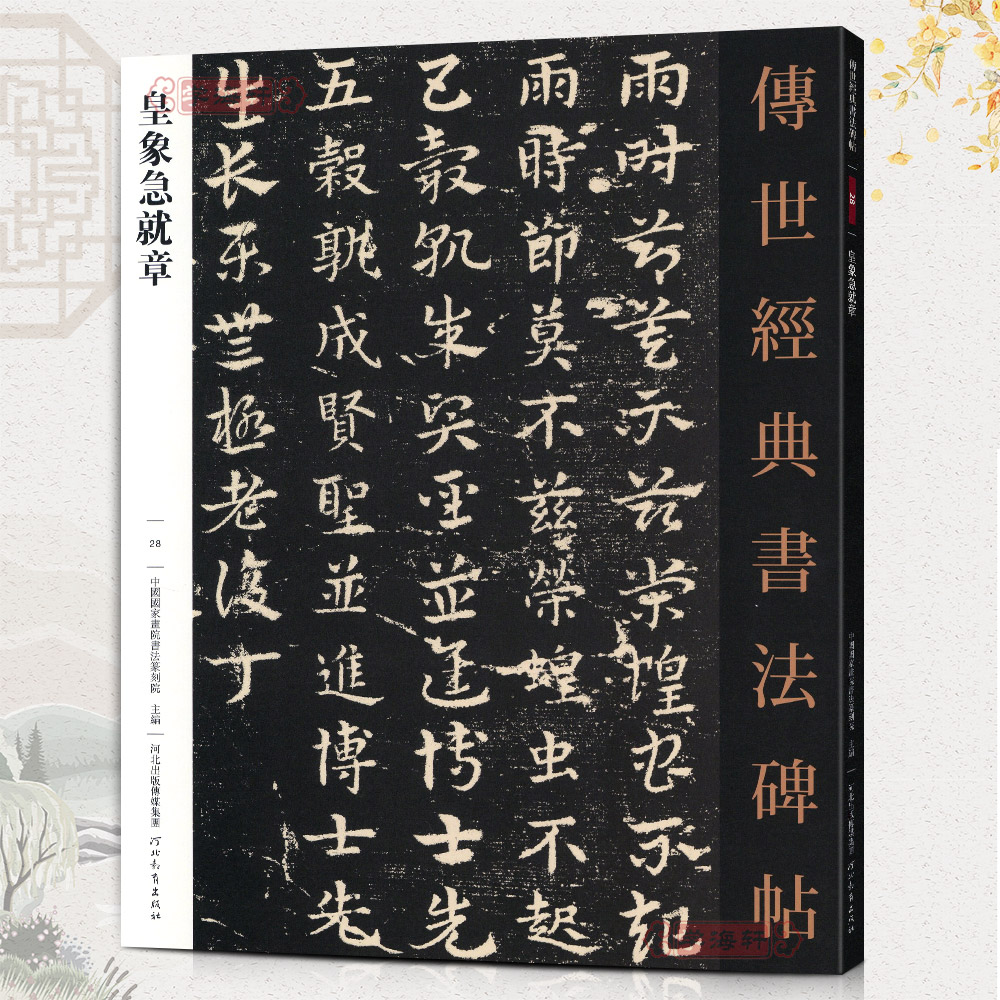 傳世經典書法碑帖
雨時節莫不茲榮蝗虫不起
雨時節莫不茲榮蝗虫不起
五穀孰成賢聖並進博士先
五穀孰成賢聖並進博士先
生長樂無極老復丁
皇象急就章
28
中國國家畫院書法篆刻院 主編
河北出版傳媒集團
河北教育出版社
傳世經典書法碑帖
28
皇象急就章
中國國家畫院書法篆刻院 主編
河北教育出版社